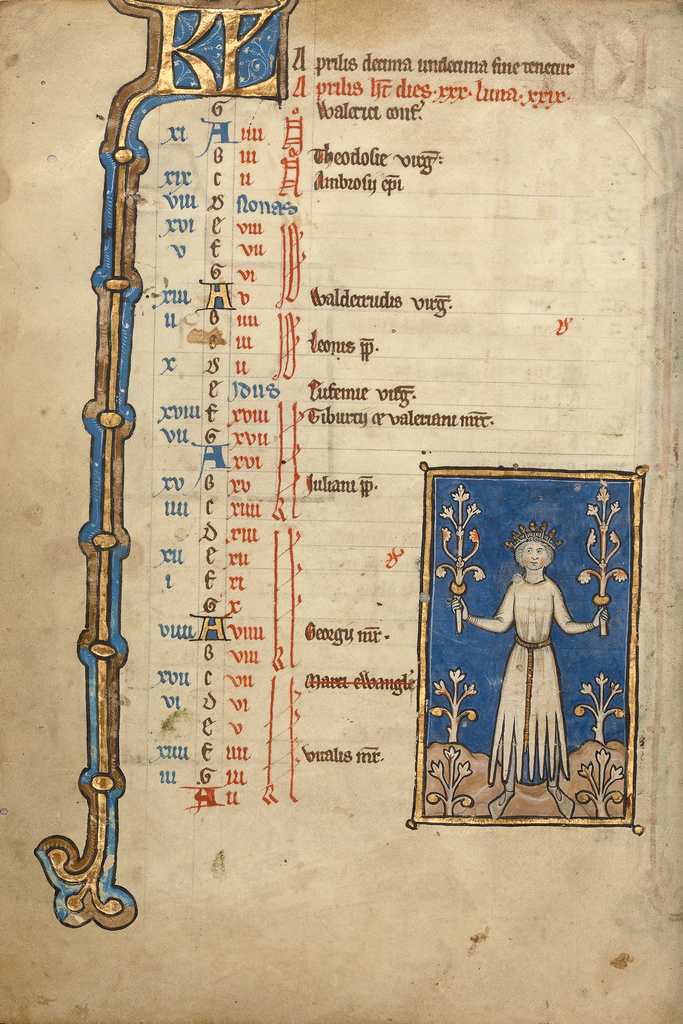 KL A prilis decima undecima fine tenetur
A prilis ht dies xxx luna xxix
G Walerici conf.
xi A iiii
B iii Theodosie virg.
xix c ii Ambrosij epi
viii D Nonas
xvi e viii
v f vii
G vi
xiii A v Waldetrudis virg.
ii B iiii
iii Leonis pp.
x D ii
e Idus Eufemie virg.
xviii f xviii Tiburtij & valeriani mrr.
vii G xvii
A xvi
xv B xv Iuliani pp.
iiii c xiiii
D xiii
xii e xii
i f xi
G x
viiii A viiii Georgij mr.
B viii
xvii c vii Marci ewangle
vi D vi
e v
xiiii f iiii Vitalis mr.
iii G iii
A ii